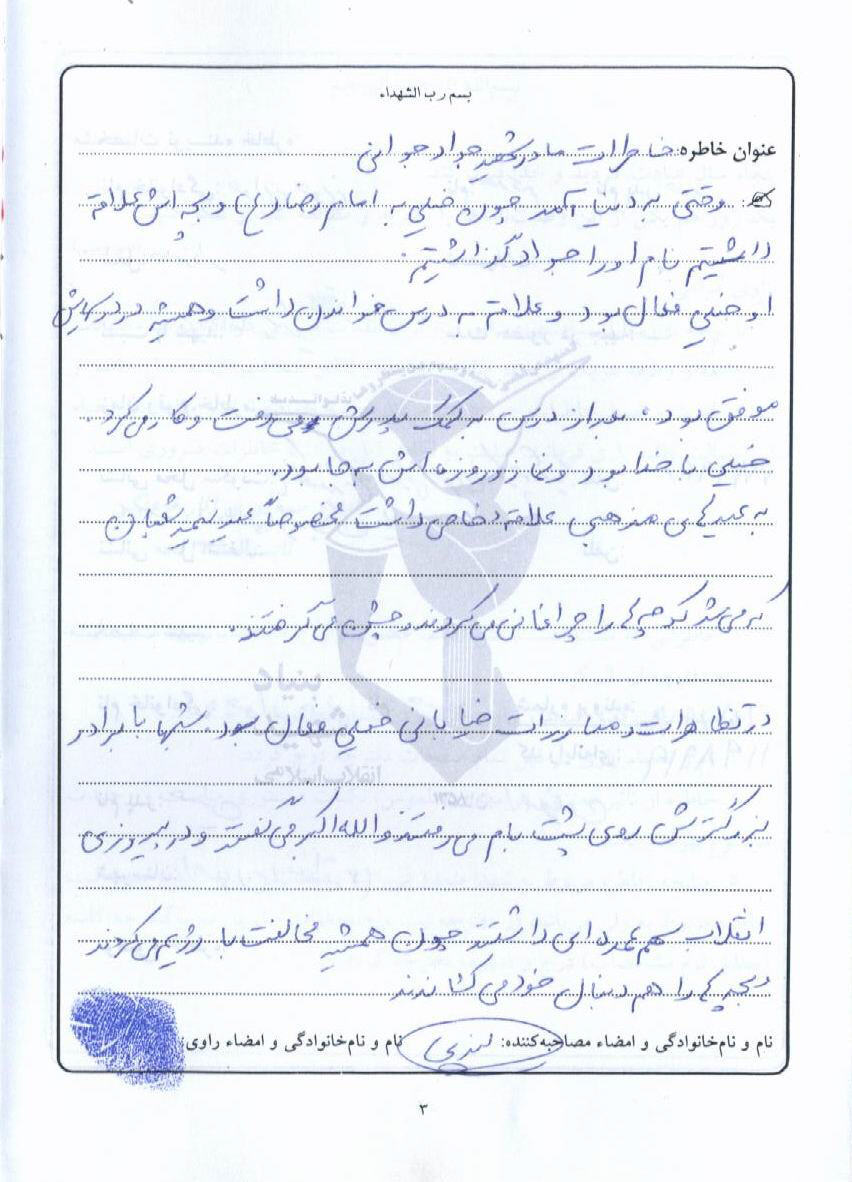 بسم رب الشهداء
عنوان خاطره: خاطرات مادر شهید جواد جوانی
وقتی به دنیا آمد چون خیلی به امام رضا (ع) و بچه اش علاقه
داشتیم نام او را جواد گذاشتیم.
او خیلی فعال بود و علاقه به درس خواندن داشت و همیشه در درسهایش
موفق بود، بعد از درس به کمک پدرش می رفت و کار می کرد.
خیلی با خدا بود و نماز و روزه اش به جا بود.
به عیدهای مذهبی علاقه خاصی داشت مخصوصاً عید نیمه شعبان
که می شد کوچه ها را چراغانی می کردند و جشن می گرفتند.
در تظاهرات و مبارزات خیابانی خیلی فعال بود. شبها با برادر
بزرگترش روی پشت بام می رفتند و الله اکبر می گفتند و در پیروزی
انقلاب سهم عمده ای داشتند چون همیشه مخالفت با رژیم می کردند
و بچه ها را هم دنبال خود می کشاندند
نام و نام‌خانوادگی و امضاء مصاحبه‌کننده: نام و نام‌خانوادگی و امضاء راوی:
۳